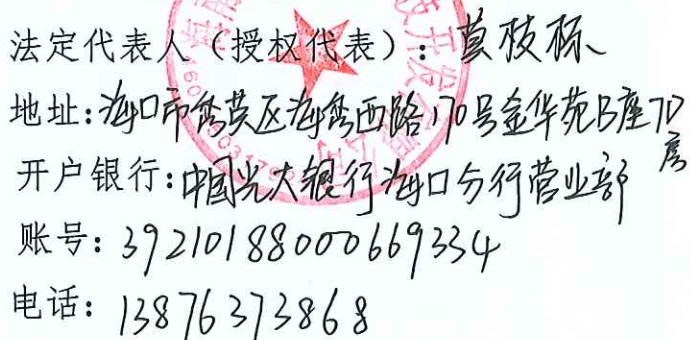 法定代表人（授权代表）：莫枝标
地址：海口市秀英区海秀西路170号金华苑B座7D房
开户银行：中国光大银行海口分行营业部
账号：39210188000669334
电话：13876373868